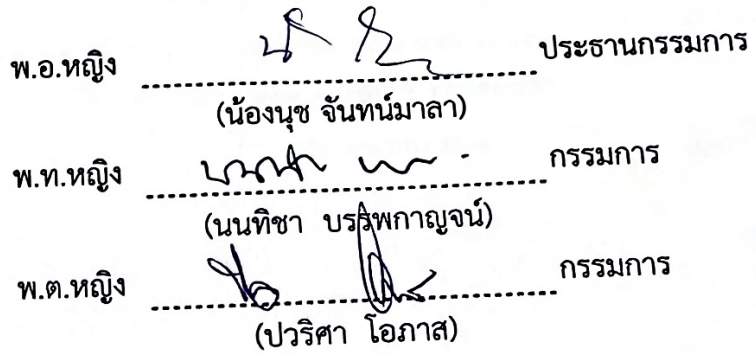 พ.อ.หญิง ประธานกรรมการ
(น้องนุช จันทน์มาลา)
พ.ท.หญิง กรรมการ
(นนทิชา บรรพกาญจน์)
พ.ต.หญิง กรรมการ
(ปวริศา โอภาส)